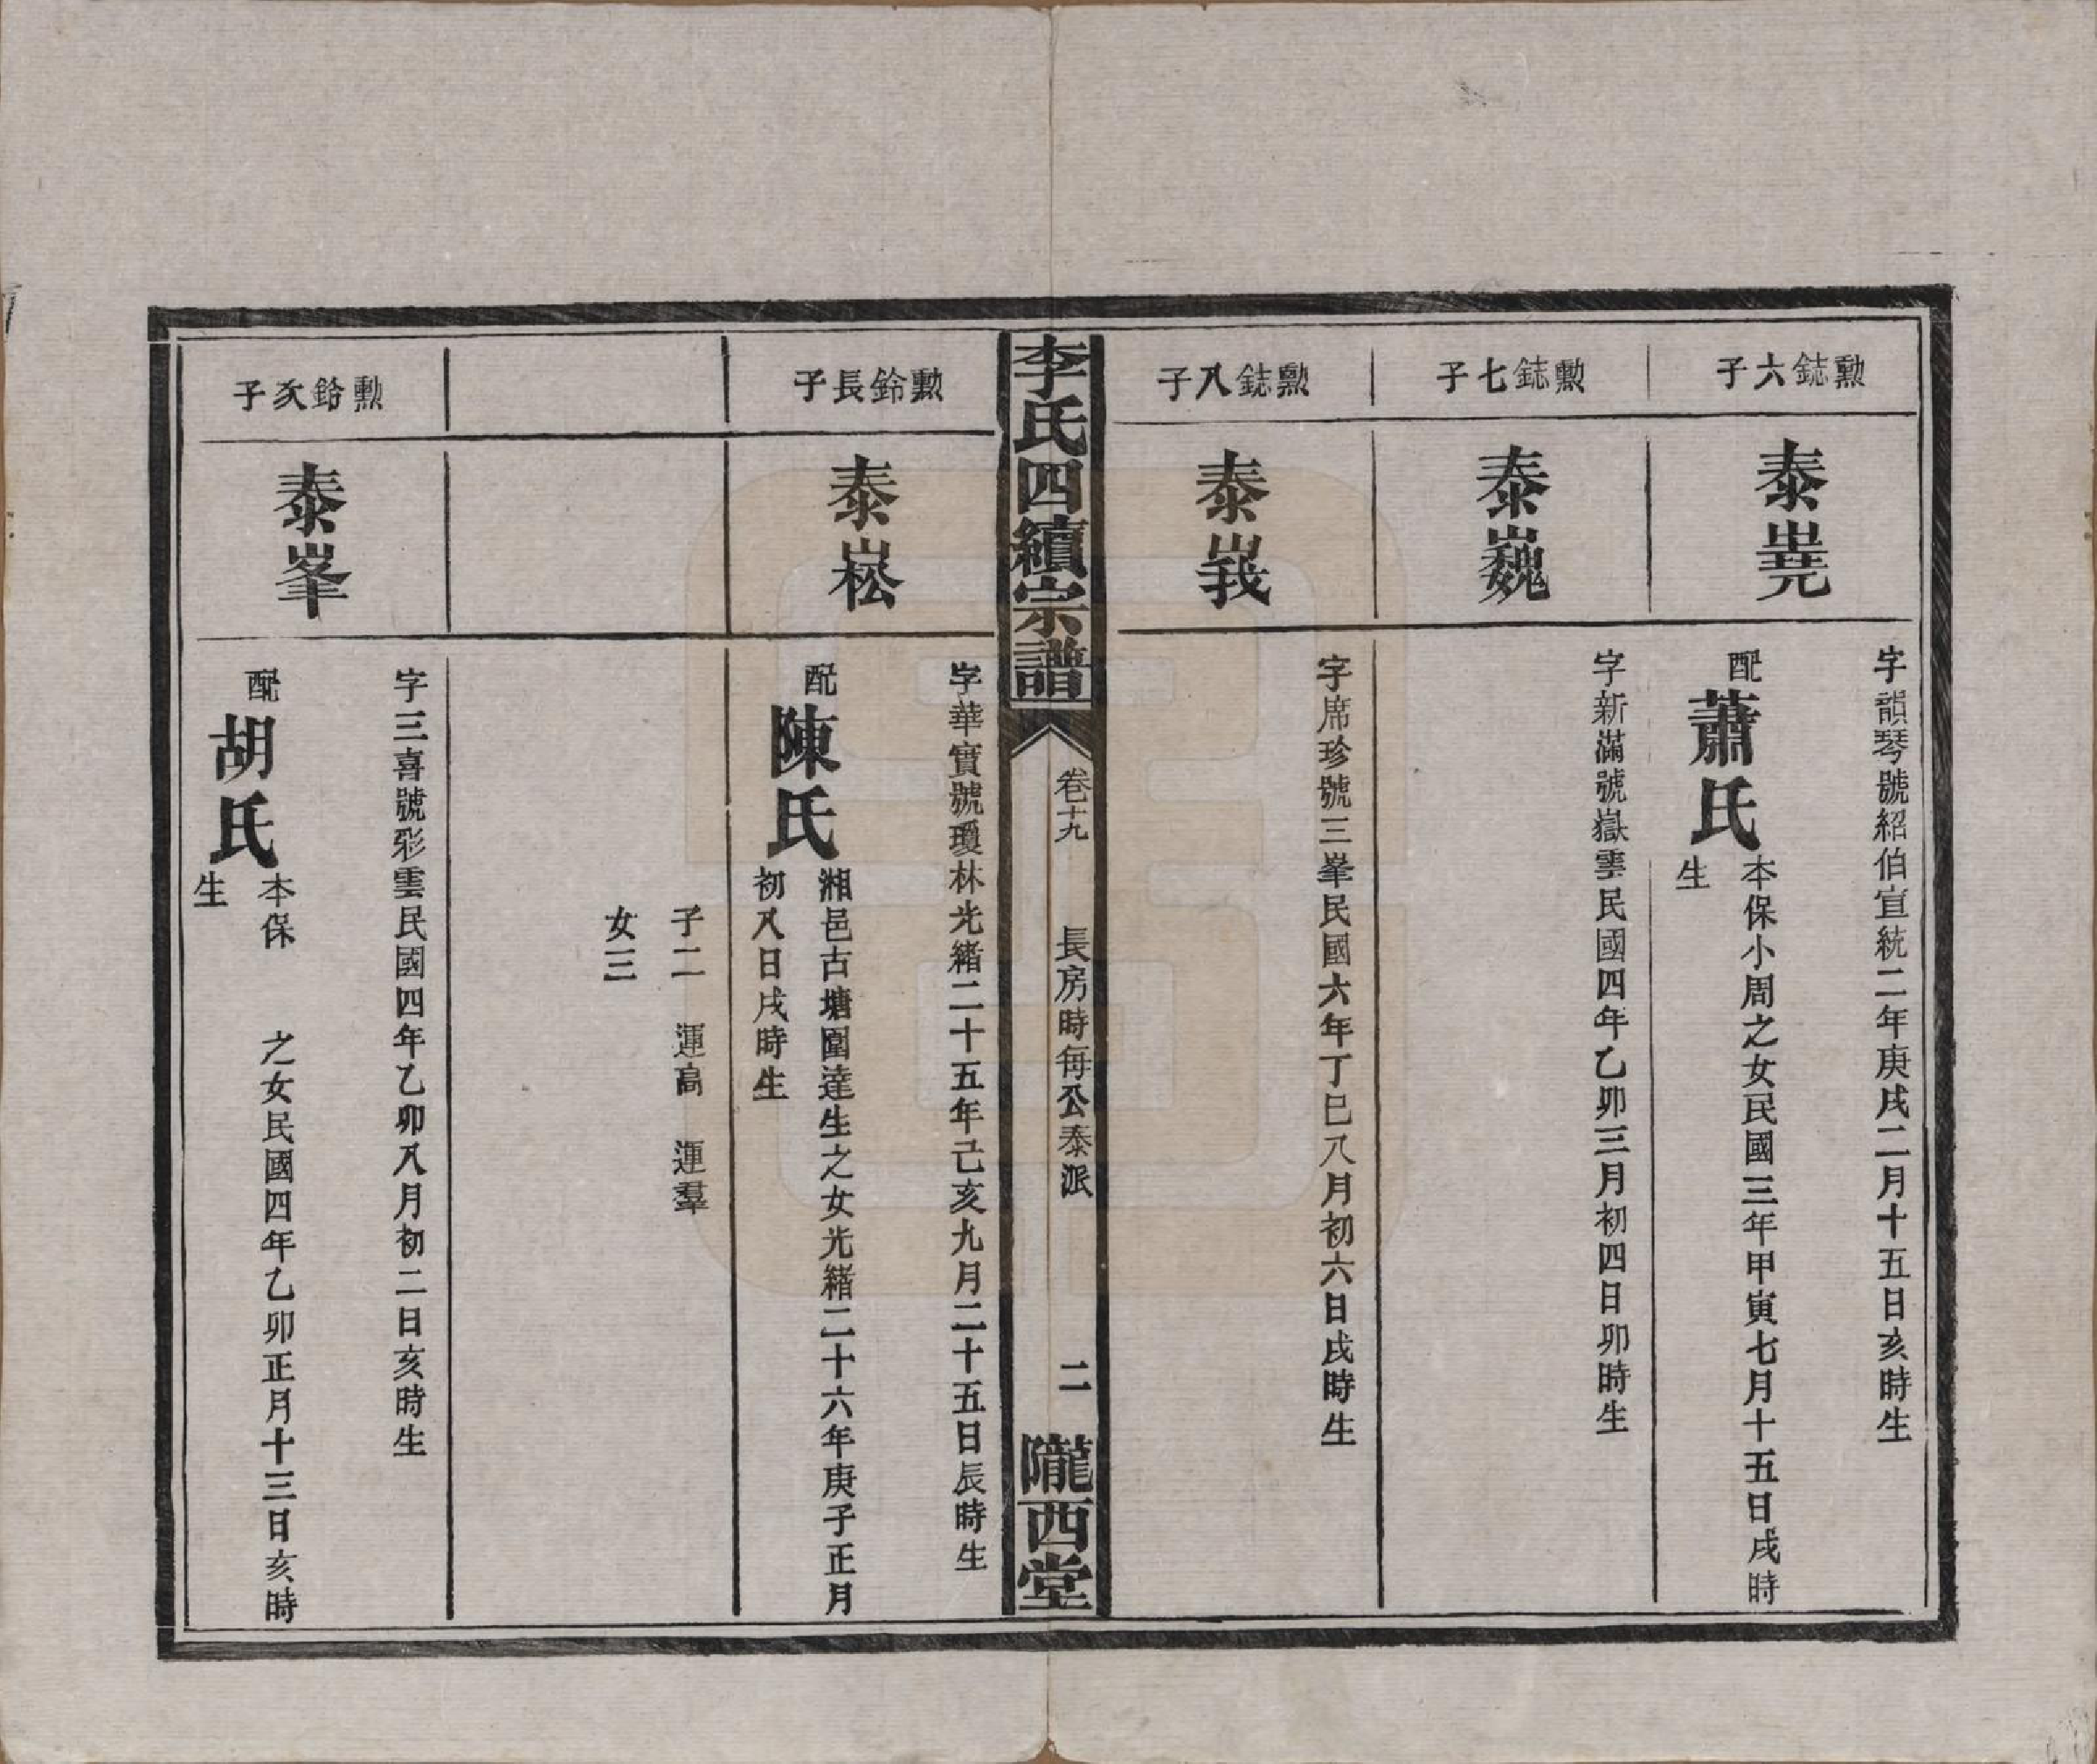 勲鋕六子
泰嶤
字韻琴號紹伯宣統二年庚戌二月十五日亥時生
配蕭氏
本保小周之女民國三年甲寅七月十五日戌時
生
勲鋕七子
泰巍
字新滿號嶽雲民國四年乙卯三月初四日卯時生
勲鋕八子
泰峩
字席珍號三峯民國六年丁巳八月初六日戌時生
李氏四續宗譜
卷十九
長房時每公泰派
二
隴西堂
勲鈴長子
泰崧
字華實號瓊林光緒二十五年己亥九月二十五日辰時生
配陳氏
湘邑古塘圍達生之女光緒二十六年庚子正月
初八日戌時生
子二 運高 運羣
女三
勲鈴次子
泰峯
字三喜號彩雲民國四年乙卯八月初二日亥時生
配胡氏
本保 之女民國四年乙卯正月十三日亥時
生